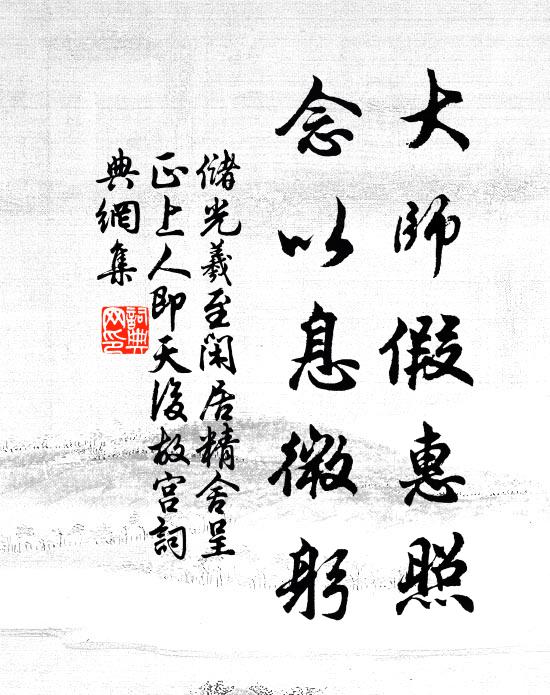 大師假惠照
念以息微躬
儲光羲至閑居精舍呈
正上人即天後故宮詞
典網集
詞典網印